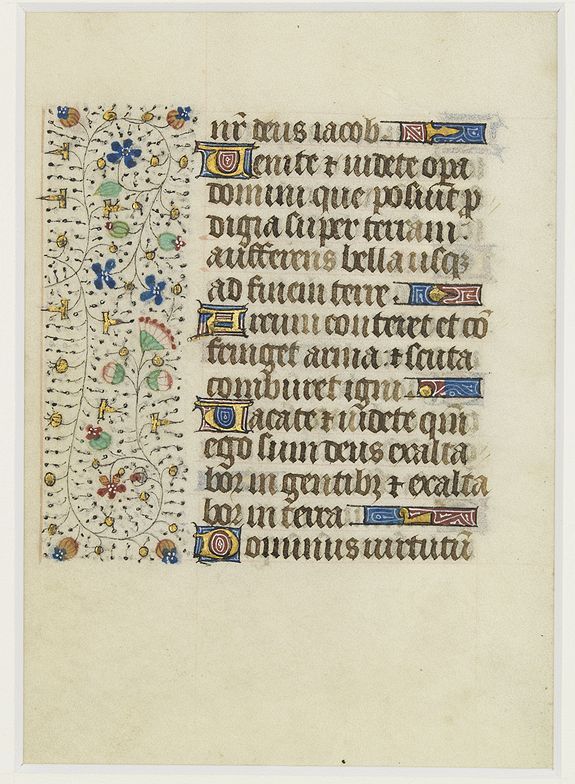 nr̄ deus iacob
Uenite ⁊ uidete opa
domini que posuit p
digia super terram
aufferens bella usqꝫ
ad finem terre
Arcum conteret et cō
fringet arma ⁊ scuta
comburet igni
Uacate ⁊ uidete qm̄
ego sum deus exalta
bor in gentibꝫ ⁊ exalta
bor in terra
Dominus uirtutū